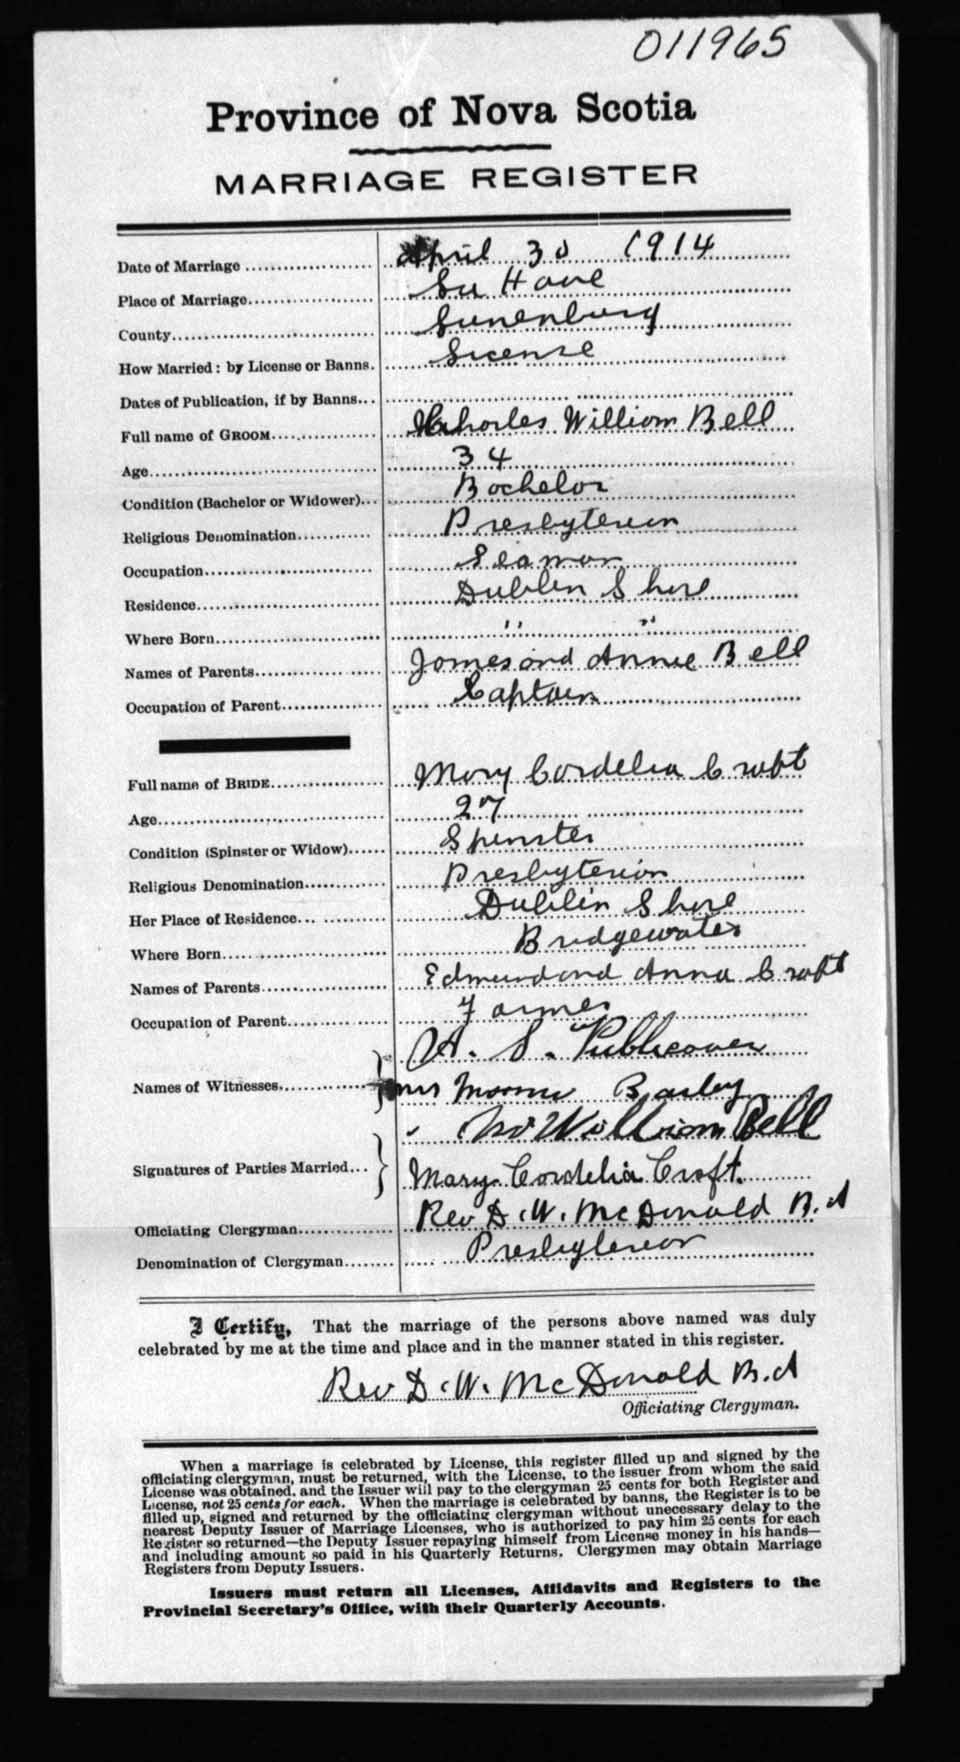 011965
Province of Nova Scotia
MARRIAGE REGISTER
Date of Marriage April 30 1914
Place of Marriage La Have
County Lunenburg
How Married: by License or Banns. License
Dates of Publication, if by Banns
Full name of GROOM Charles William Bell
Age 34
Condition (Bachelor or Widower) Bachelor
Religious Denomination Presbyterian
Occupation Seaman
Residence Dublin Shore
Where Born " "
Names of Parents James and Annie Bell
Occupation of Parent Captain
Full name of BRIDE Mary Cordelia Croft
Age 27
Condition (Spinster or Widow) Spinster
Religious Denomination Presbyterian
Her Place of Residence Dublin Shore
Where Born Bridgewater
Names of Parents Edmund and Anna Croft
Occupation of Parent Farmer
A. S. Publicover
Names of Witnesses Mrs
William Bell
Signatures of Parties Married Mary Cordelia Croft.
Officiating Clergyman Rev D. W. McDonald B.d
Denomination of Clergyman Presbyterian
I Certify, That the marriage of the persons above named was duly
celebrated by me at the time and place and in the manner stated in this register.
Rev D. W. McDonald B.d
Officiating Clergyman.
When a marriage is celebrated by License, this register filled up and signed by the
officiating clergyman, must be returned, with the License, to the issuer from whom the said
License was obtained, and the Issuer will pay to the clergyman 25 cents for both Register and
License, not 25 cents for each. When the marriage is celebrated by banns, the Register is to be
filled up, signed and returned by the officiating clergyman without unecessary delay to the
nearest Deputy Issuer of Marriage Licenses, who is authorized to pay him 25 cents for each
Register so returned—the Deputy Issuer repaying himself from License money in his hands—
and including amount so paid in his Quarterly Returns. Clergymen may obtain Marriage
Registers from Deputy Issuers.
Issuers must return all Licenses, Affidavits and Registers to the
Provincial Secretary's Office, with their Quarterly Accounts.